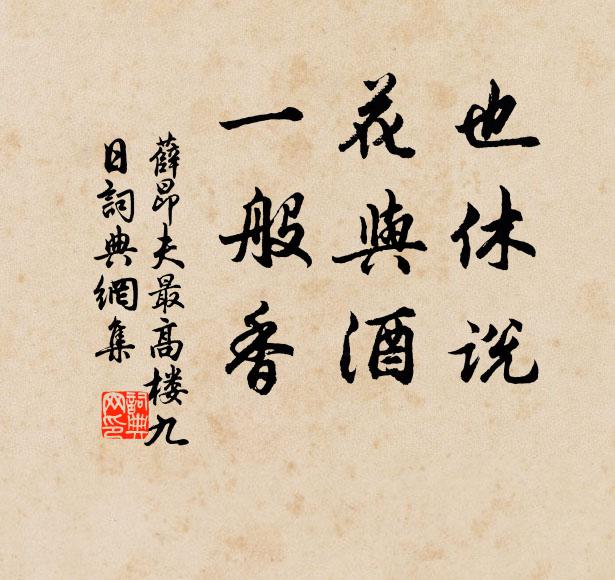 也休説
花與酒
一般香
薛昂夫最高楼九
日詞典網集
詞典
网印